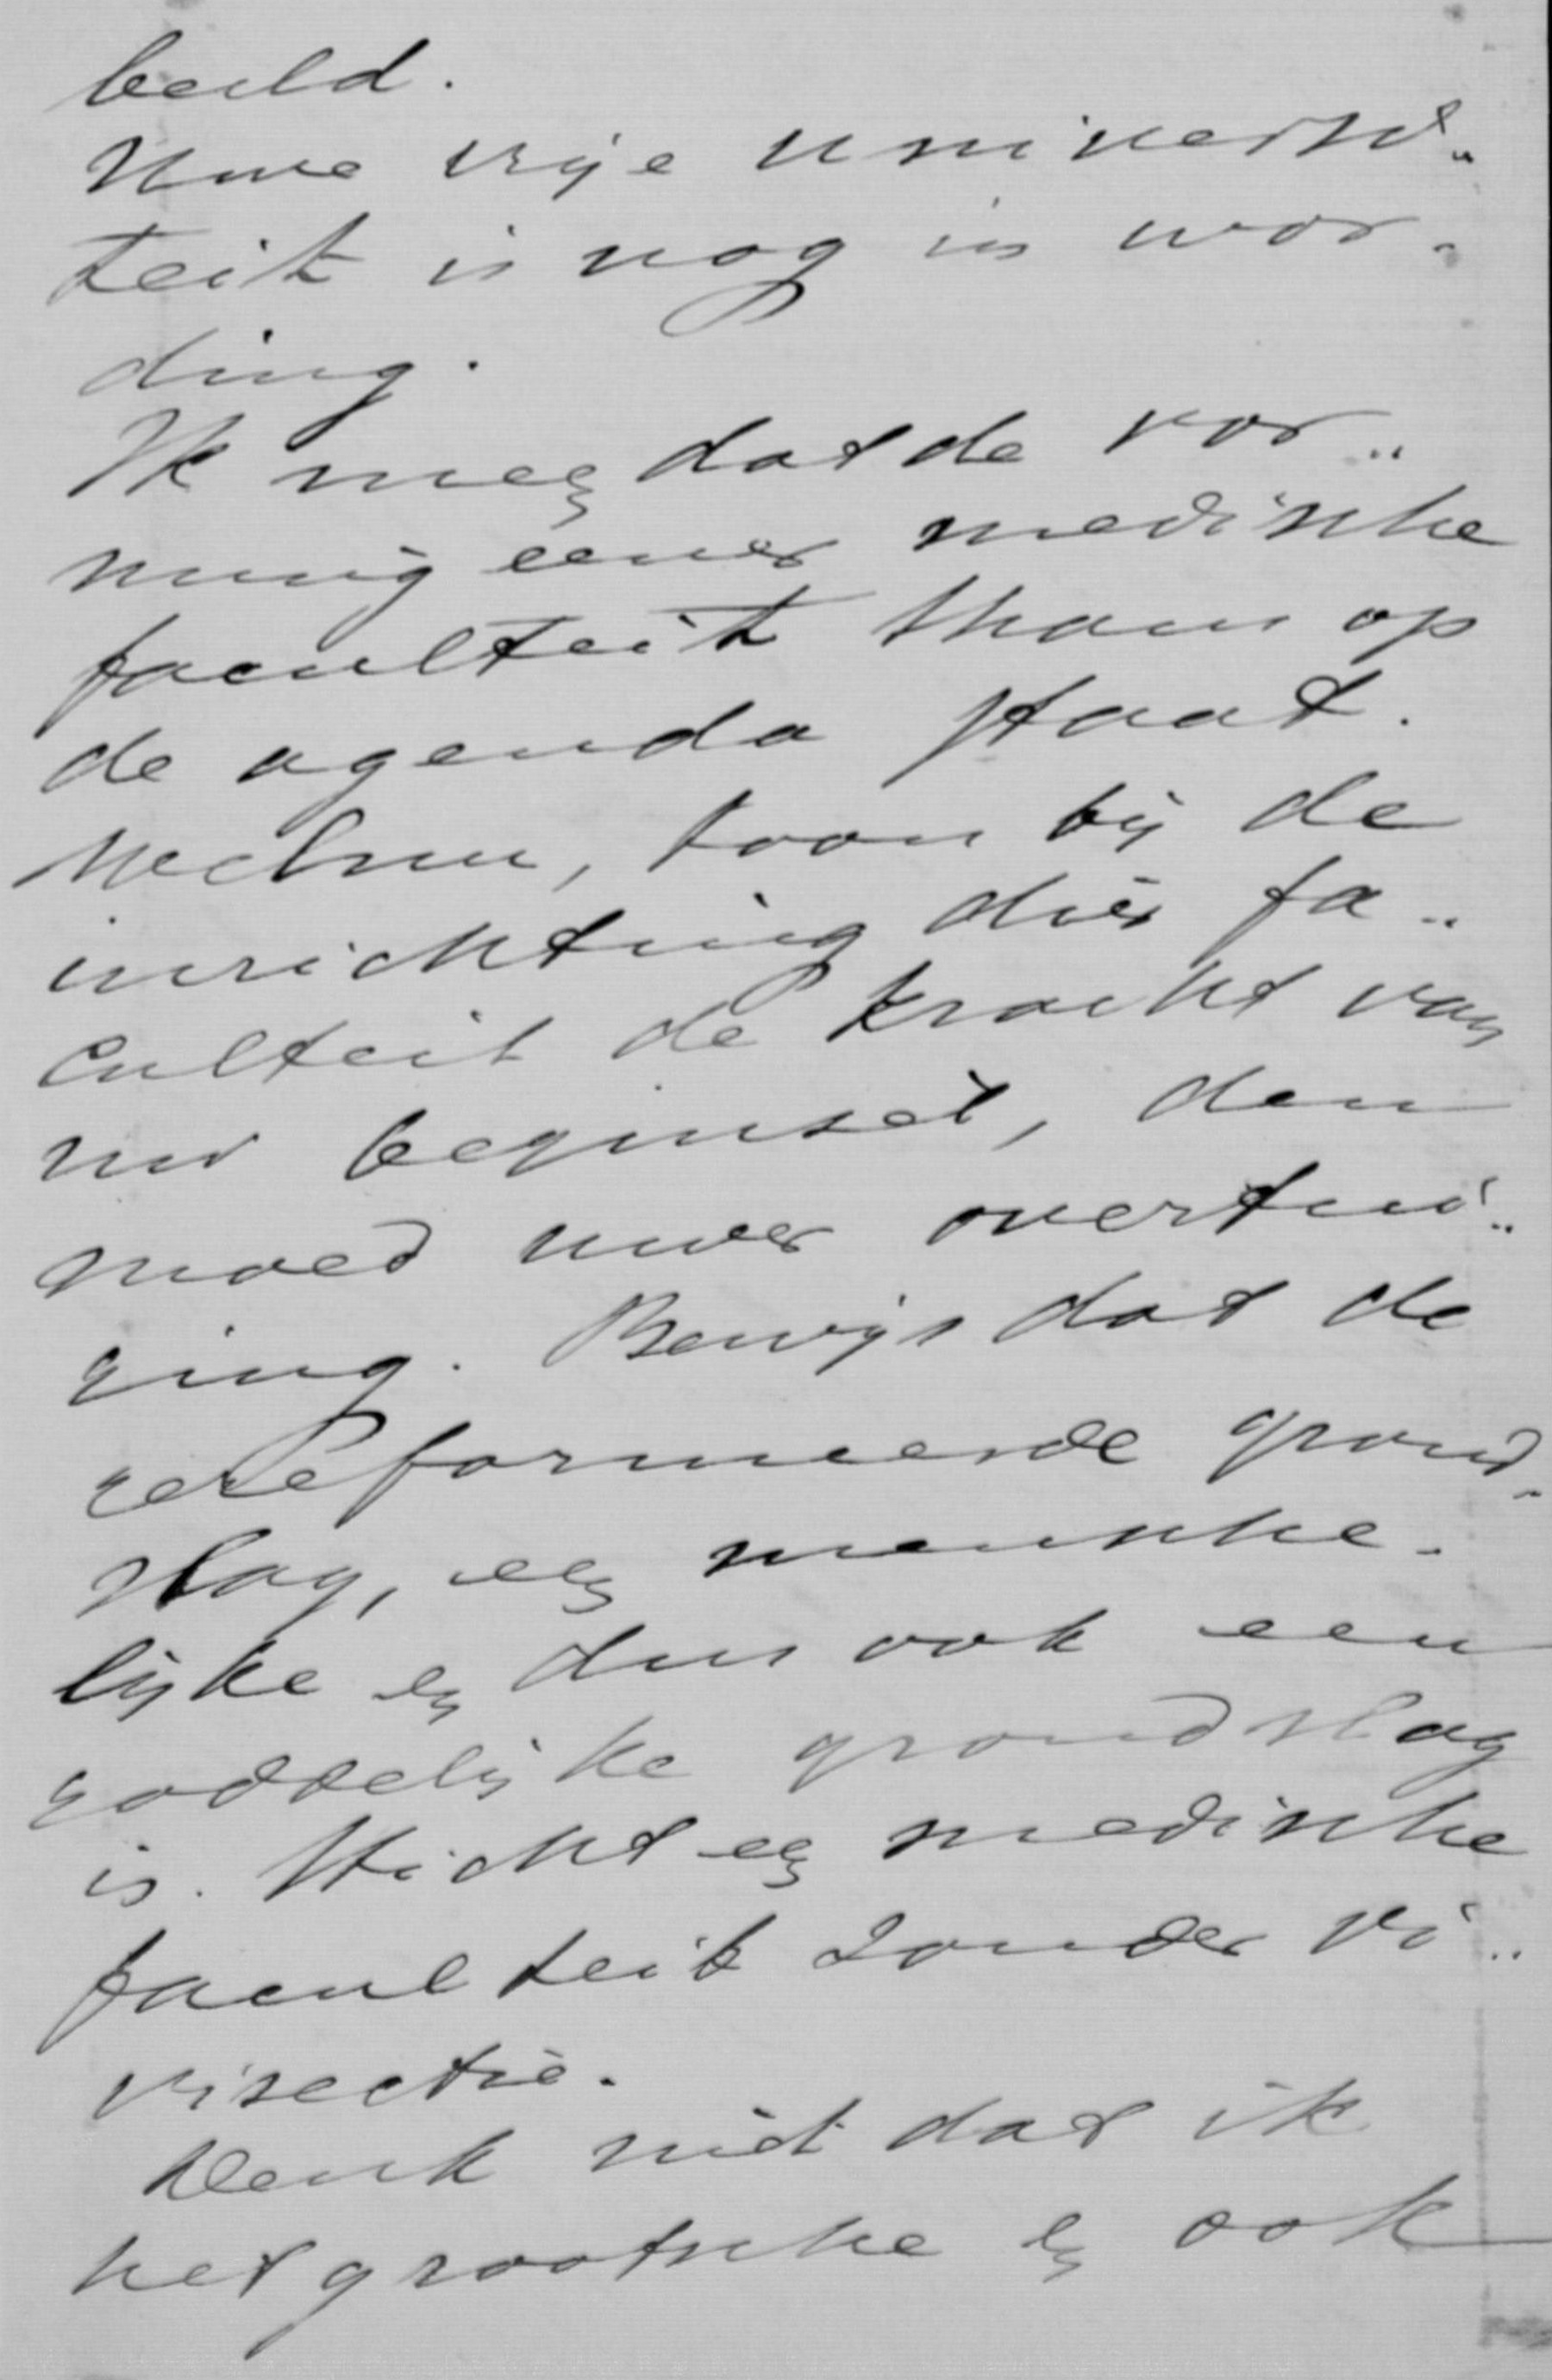 beeld.
Uwe vrije universi„
teit is nog in wor„
ding.
Ik meen dat de vor„
ming eener medische
faculteit thans op
de agenda staat.
Welnu, toon bij de
inrichting dier fa„
culteit de kracht van
uw beginsel, den
moed uwer overtui„
ging. Bewijs dat de
gereformeerde grond„
slag, een mensche„
lijke en dus ook een
goddelijke grondslag
is. Sticht een medische
faculteit zonder vi„
visectie.
Denk niet dat ik
het grootsche en ook